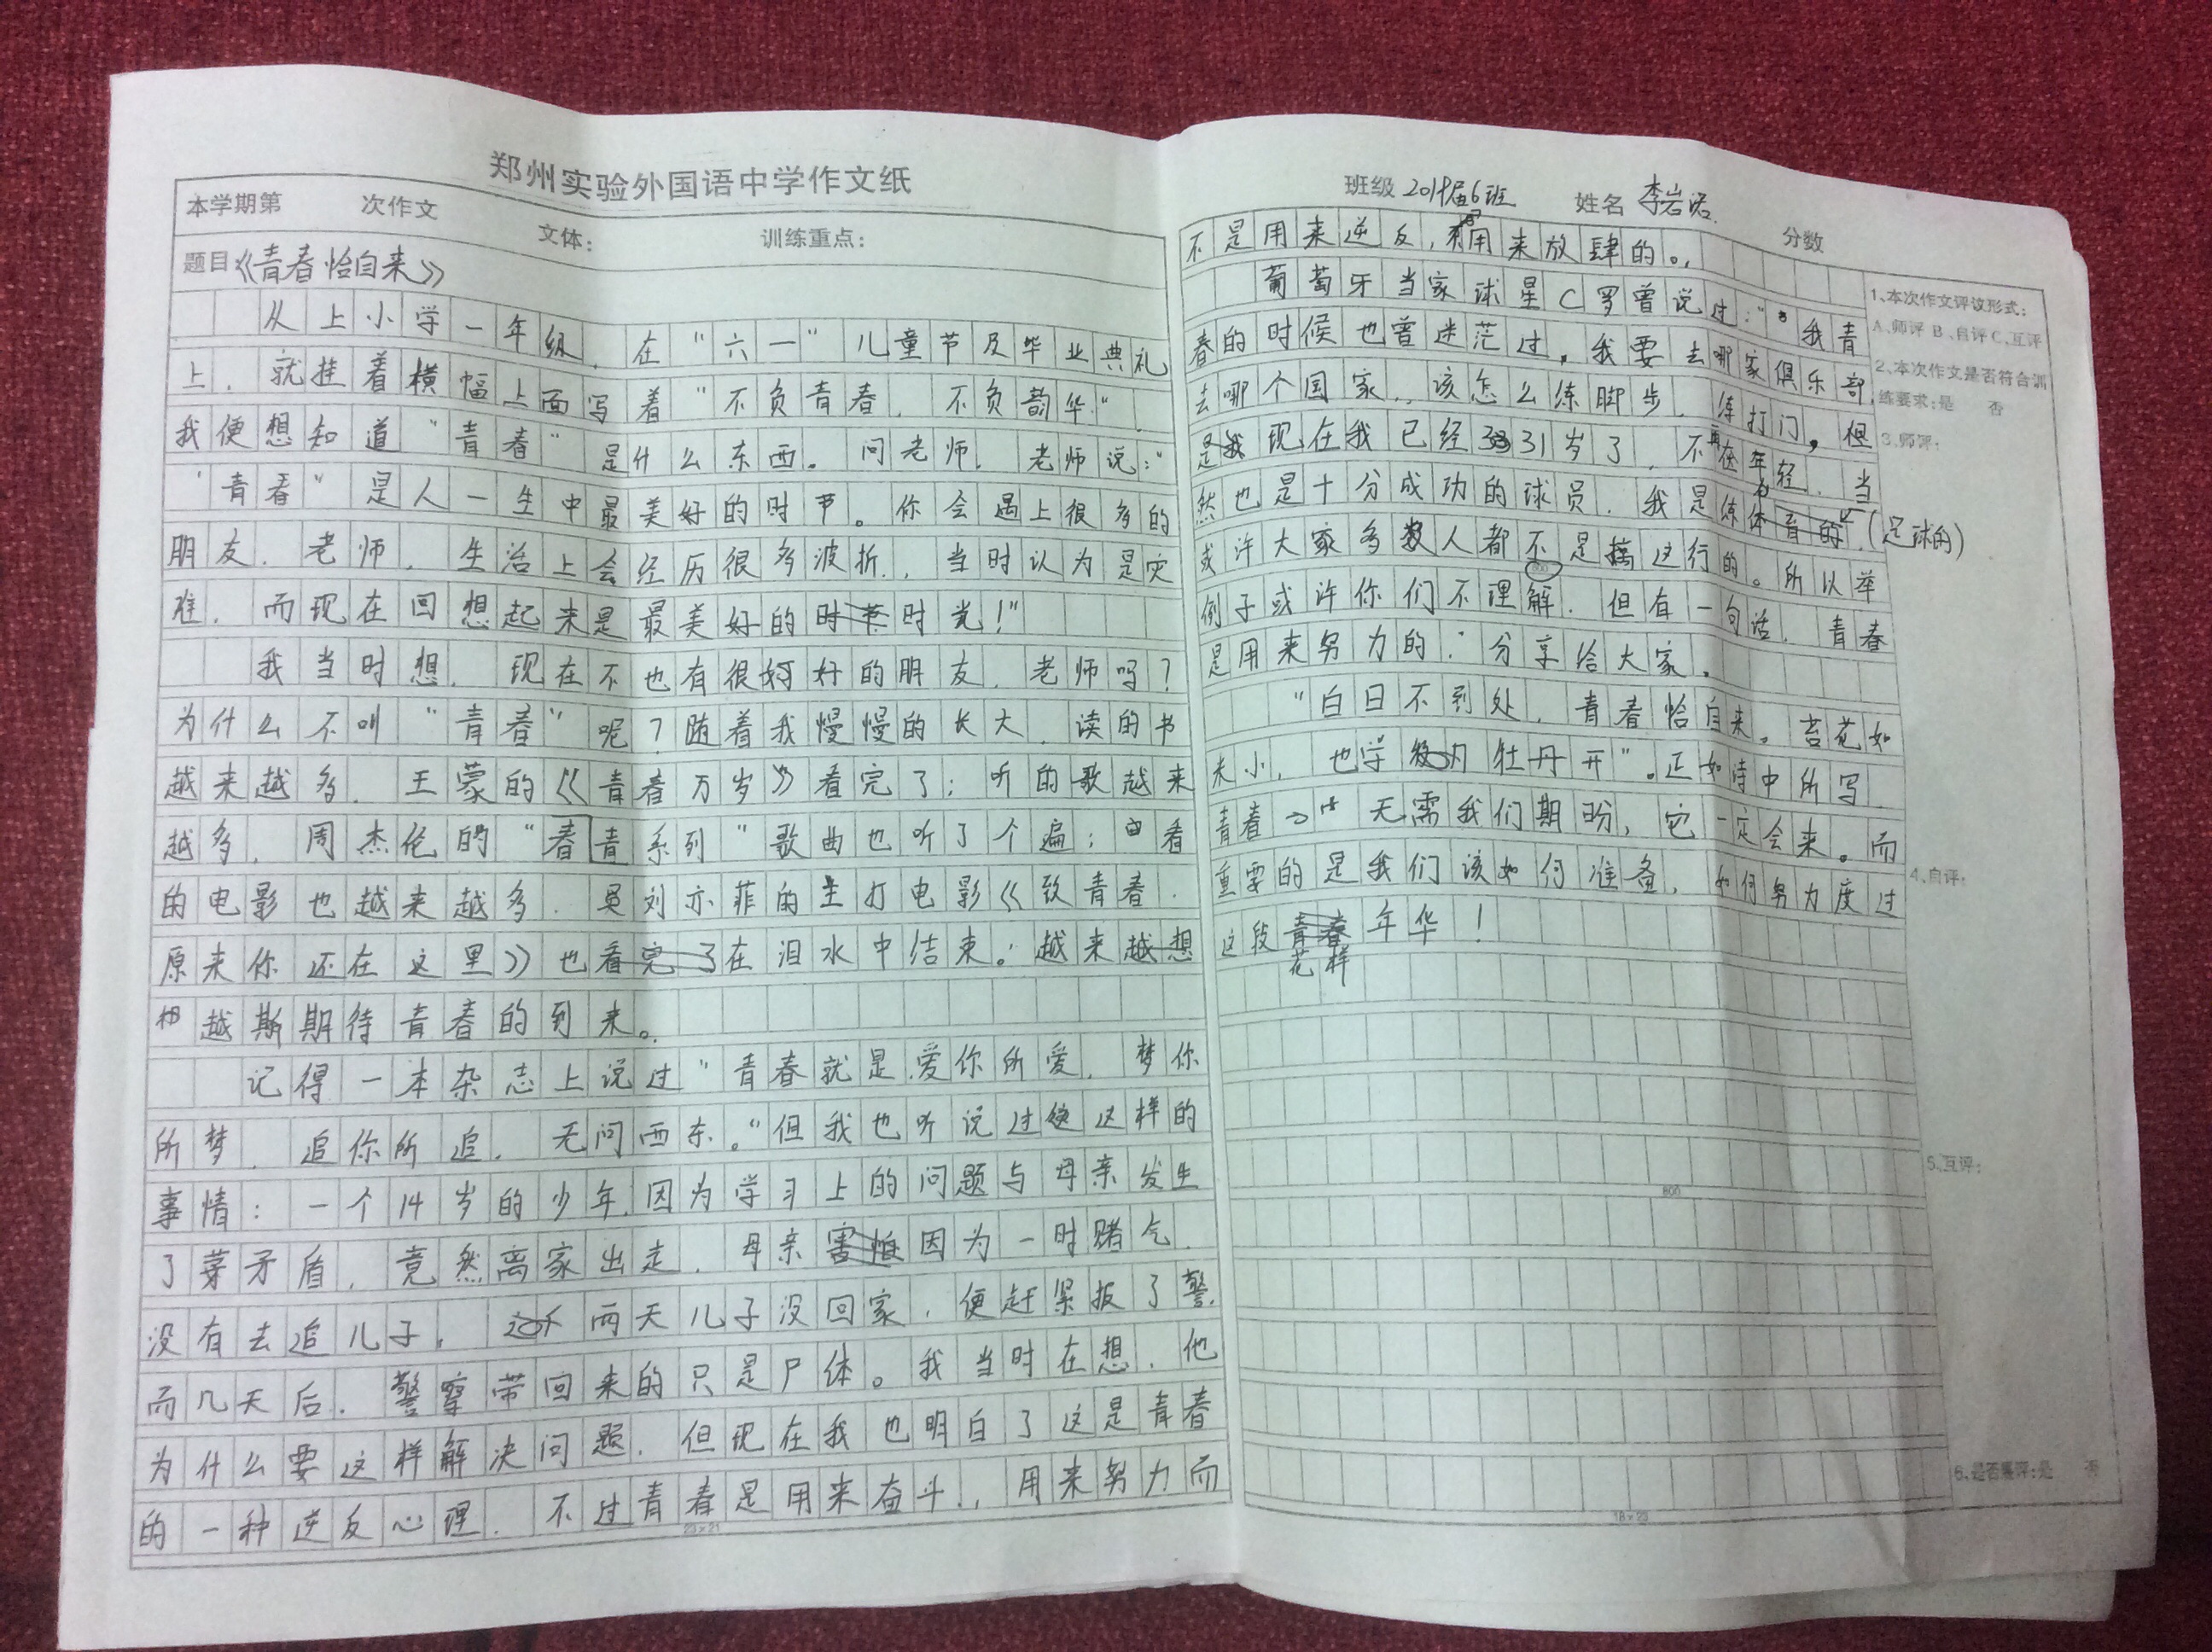 郑州实验外国语中学作文纸
本学期第 次作文 文体： 训练重点：
题目《青春恰自来》
从上小学一年级，在“六一”儿童节及毕业典礼
上，就挂着横幅上面写着“不负青春，不负韵华”，
我便想知道“青春”是什么东西。问老师，老师说：“
‘青春”是人一生中最美好的时节。你会遇上很多的
朋友、老师，生活上会经历很多波折，当时认为是灾
难，而现在回想起来是最美好的时光！”
我当时想，现在不也有很好的朋友、老师吗？
为什么不叫“青春”呢？随着我慢慢的长大，读的书
越来越多，王蒙的《青春万岁》看完了；听的歌越来
越多，周杰伦的“春青系列”歌曲也听了个遍；看
的电影也越来越多，刘亦菲的主打电影《致青春·
原来你还在这里》也看在泪水中结束。越来
越期待青春的到来。
记得一本杂志上说过“青春就是爱你所爱，梦你
所梦，追你所追，无问西东。”但我也听说过这样的
事情：一个14岁的少年因为学习上的问题与母亲发生
了矛盾，竟然离家出走，母亲因为一时赌气，
没有去追儿子，两天儿子没回家，便赶紧报了警，
而几天后，警察带回来的只是尸体。我当时在想，他
为什么要这样解决问题，但现在我也明白了这是青春
的一种逆反心理，不过青春是用来奋斗，用来努力而
23×21
班级 2019届6班 姓名 李岩 分数
不是用来逆反，用来放肆的。
葡萄牙当家球星C罗曾说过：“我青
春的时候也曾迷茫过，我要去哪家俱乐部，
去哪个国家，该怎么练脚步，练打门，但
是现在我已经31岁了，不再年轻，当
然也是十分成功的球员，我是练体育的（足球的）
或许大家多数人都不是搞这行的。所以举
例子或许你们不理解，但有一句话，青春
是用来努力的。”分享给大家。
“白日不到处，青春恰自来。苔花如
米小，也学牡丹开”。正如诗中所写，
青春无需我们期盼，它一定会来。而
重要的是我们该如何准备，如何努力度过
这段花样年华！
800
18×23
1、本次作文评议形式：
A、师评 B、自评 C、互评
2、本次作文是否符合训
练要求：是 否
3、师评：
4、自评：
5、互评：
6、是否展评：是 否